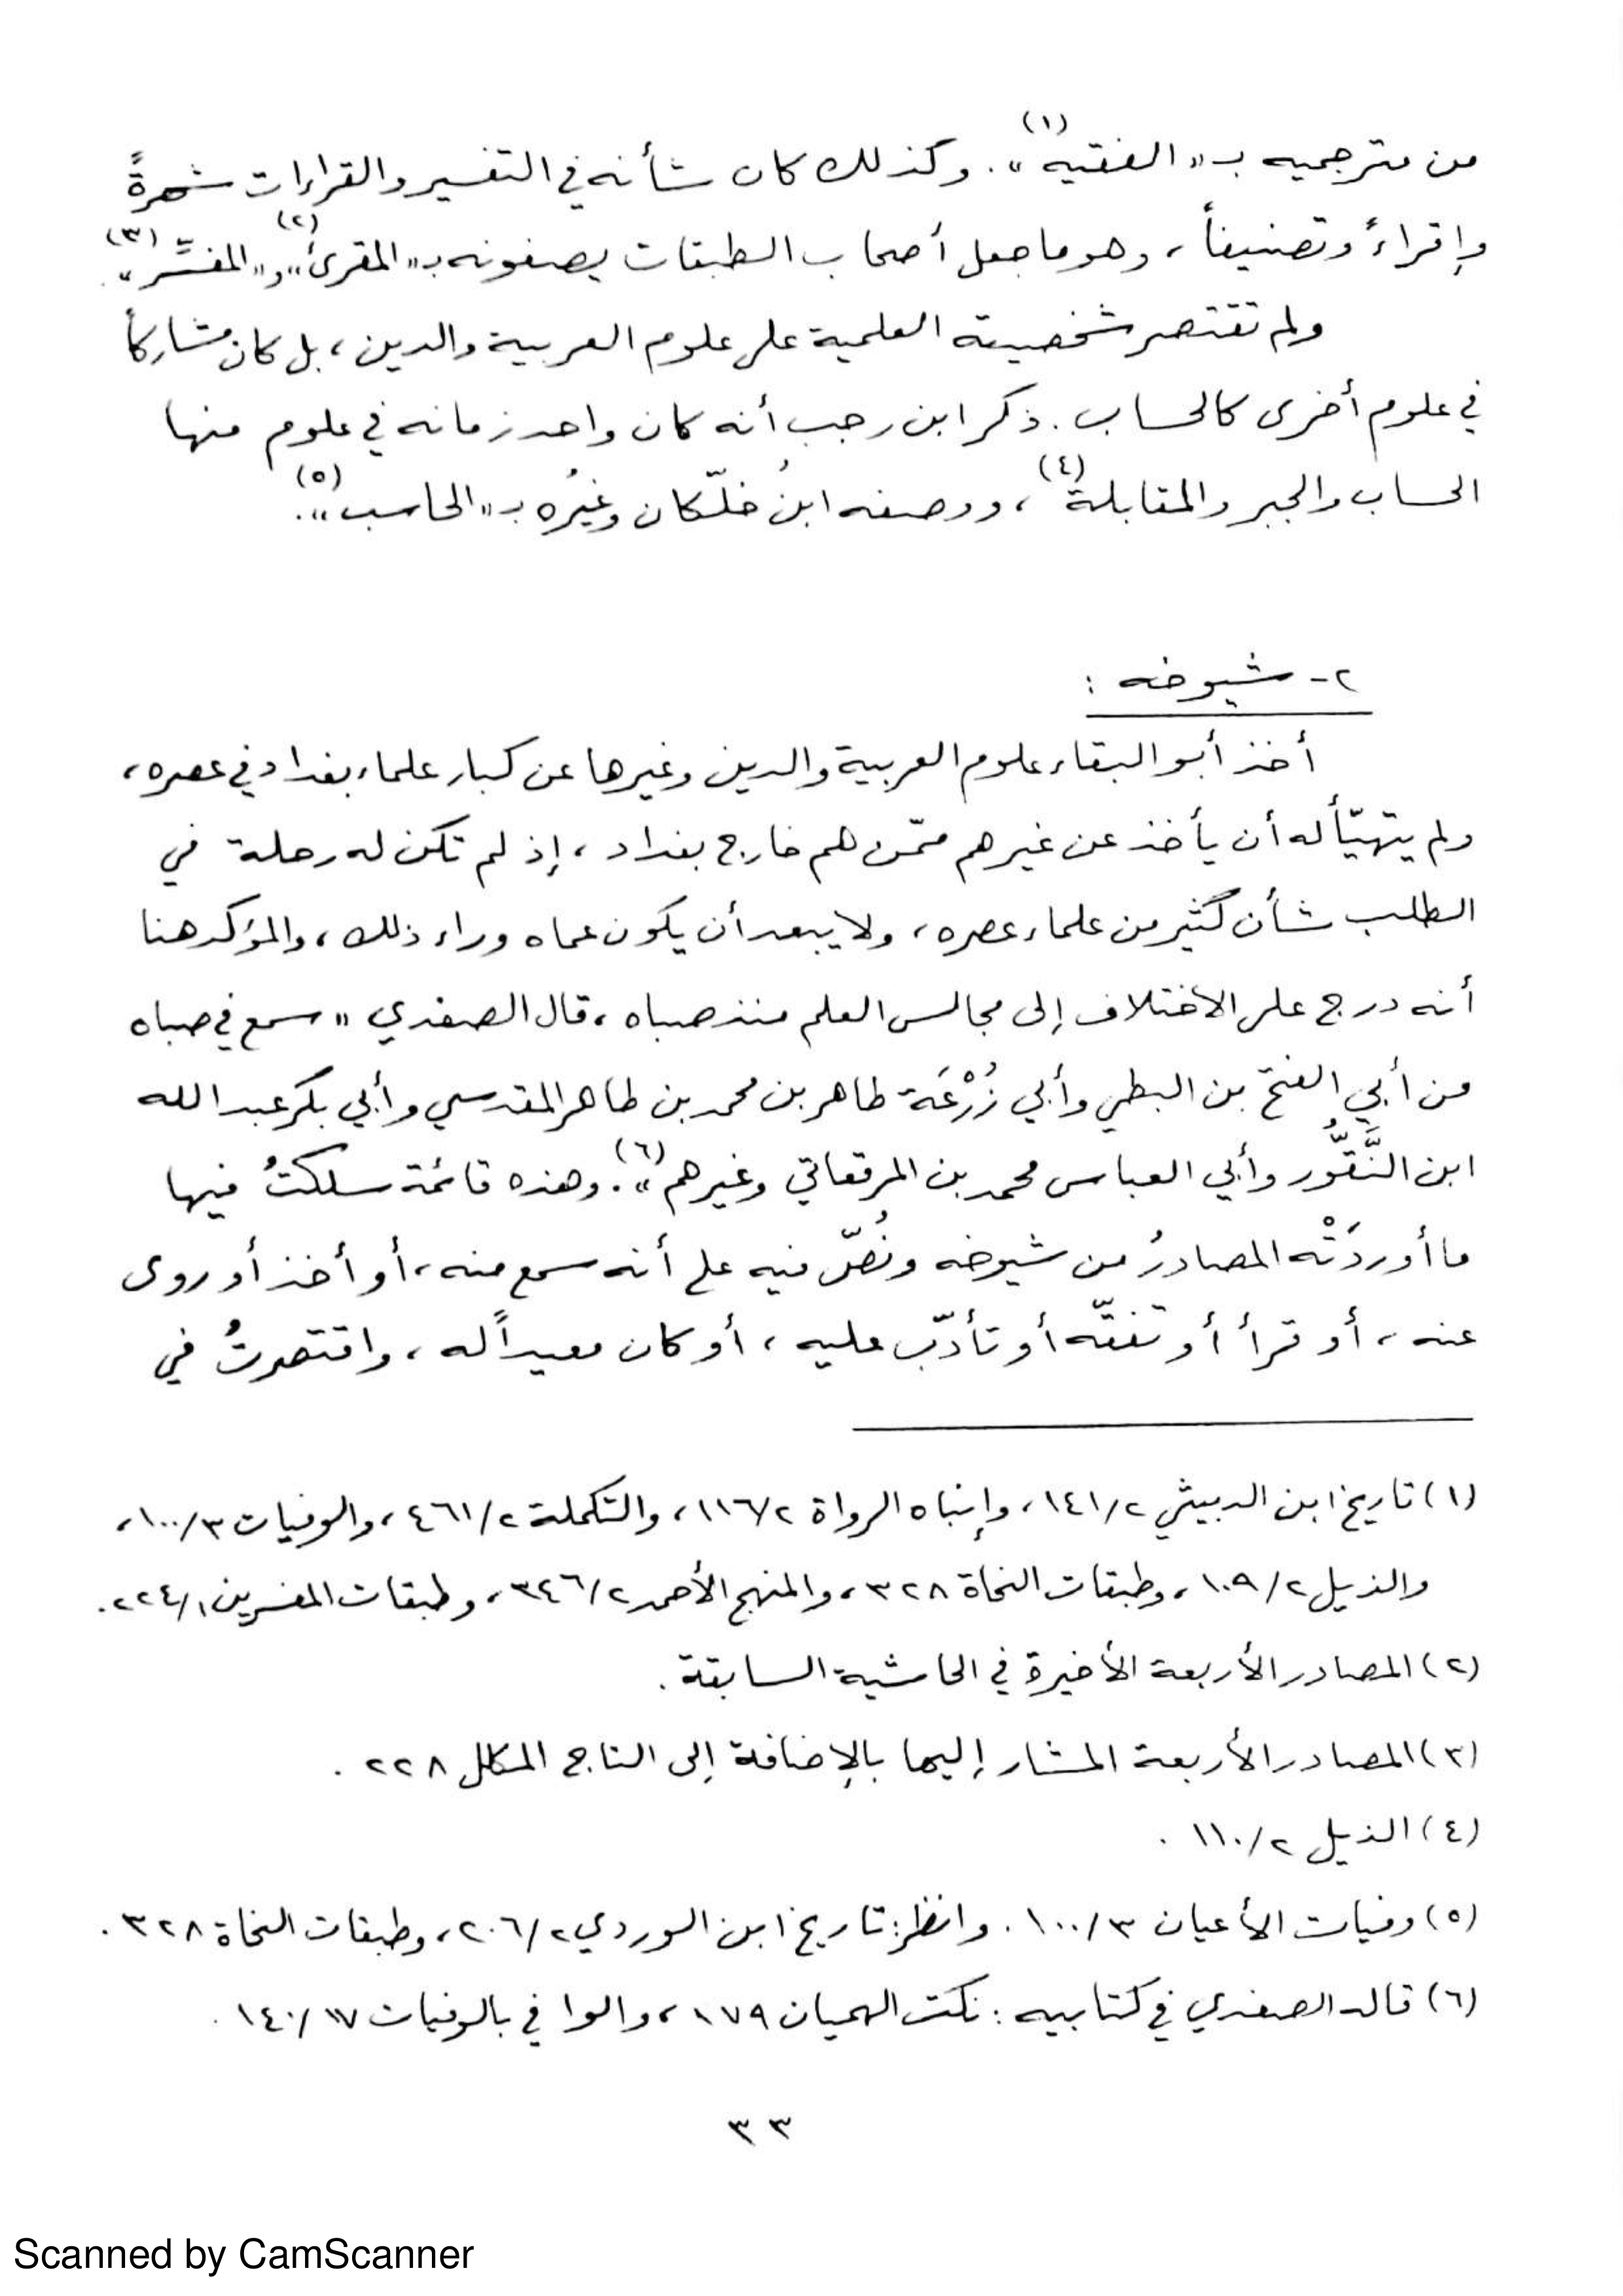 من مترجميه بـ «الفقيه»(١). وكذلك كان شأنه في التفسير والقراءات شهرةً
وإقراءً وتصنيفاً، وهو ما جعل أصحاب الطبقات يصفونه بـ «المقرئ»(٢) و«المفسِّر»(٣).
ولم تقتصر شخصيته العلمية على علوم العربية والدين، بل كان مشاركاً
في علوم أخرى كالحساب. ذكر ابن رجب أنه كان واحد زمانه في علوم منها
الحساب والجبر والمقابلة(٤)، ووصفه ابنُ خلّكان وغيرُه بـ «الحاسب»(٥).
٢- شيوخه :
أخذ أبو البقاء علوم العربية والدين وغيرها عن كبار علماء بغداد في عصره،
ولم يتهيّأ له أن يأخذ عن غيرهم ممّن هم خارج بغداد، إذ لم تكن له رحلة في
الطلب شأن كثير من علماء عصره، ولا يبعد أن يكون عماه وراء ذلك، والمؤكد هنا
أنه درج على الاختلاف إلى مجالس العلم منذ صباه، قال الصفدي «سمع في صباه
من أبي الفتح بن البطي وأبي زُرْعَة طاهر بن محمد بن طاهر المقدسي وأبي بكر عبد الله
ابن النَّقُّور وأبي العباس محمد بن المرقعاتي وغيرهم»(٦). وهذه قائمة سلكتُ فيها
ما أوردَتْه المصادرُ من شيوخه ونُصّ فيه على أنه سمع منه، أو أخذ أو روى
عنه، أو قرأ أو تفقّه أو تأدّب عليه، أو كان معيداً له، واقتصرتُ في
(١) تاريخ ابن الدبيثي ١٤١/٢، وإنباه الرواة ١١٦/٢، والتكملة ٤٦١/٢، والوفيات ١٠٠/٣،
والذيل ١٠٩/٢، وطبقات النحاة ٣٢٨، والمنهج الأحمد ٣٤٦/٢، وطبقات المفسرين ٢٢٤/١.
(٢) المصادر الأربعة الأخيرة في الحاشية السابقة.
(٣) المصادر الأربعة المشار إليها بالإضافة إلى التاج المكلل ٢٢٨.
(٤) الذيل ١١٠/٢.
(٥) وفيات الأعيان ١٠٠/٣. وانظر: تاريخ ابن الوردي ٢٠٦/٢، وطبقات النحاة ٣٢٨.
(٦) قاله الصفدي في كتابيه : نكت الهميان ١٧٩، والوافي بالوفيات ١٤٠/١٧.
٣٣
Scanned by CamScanner